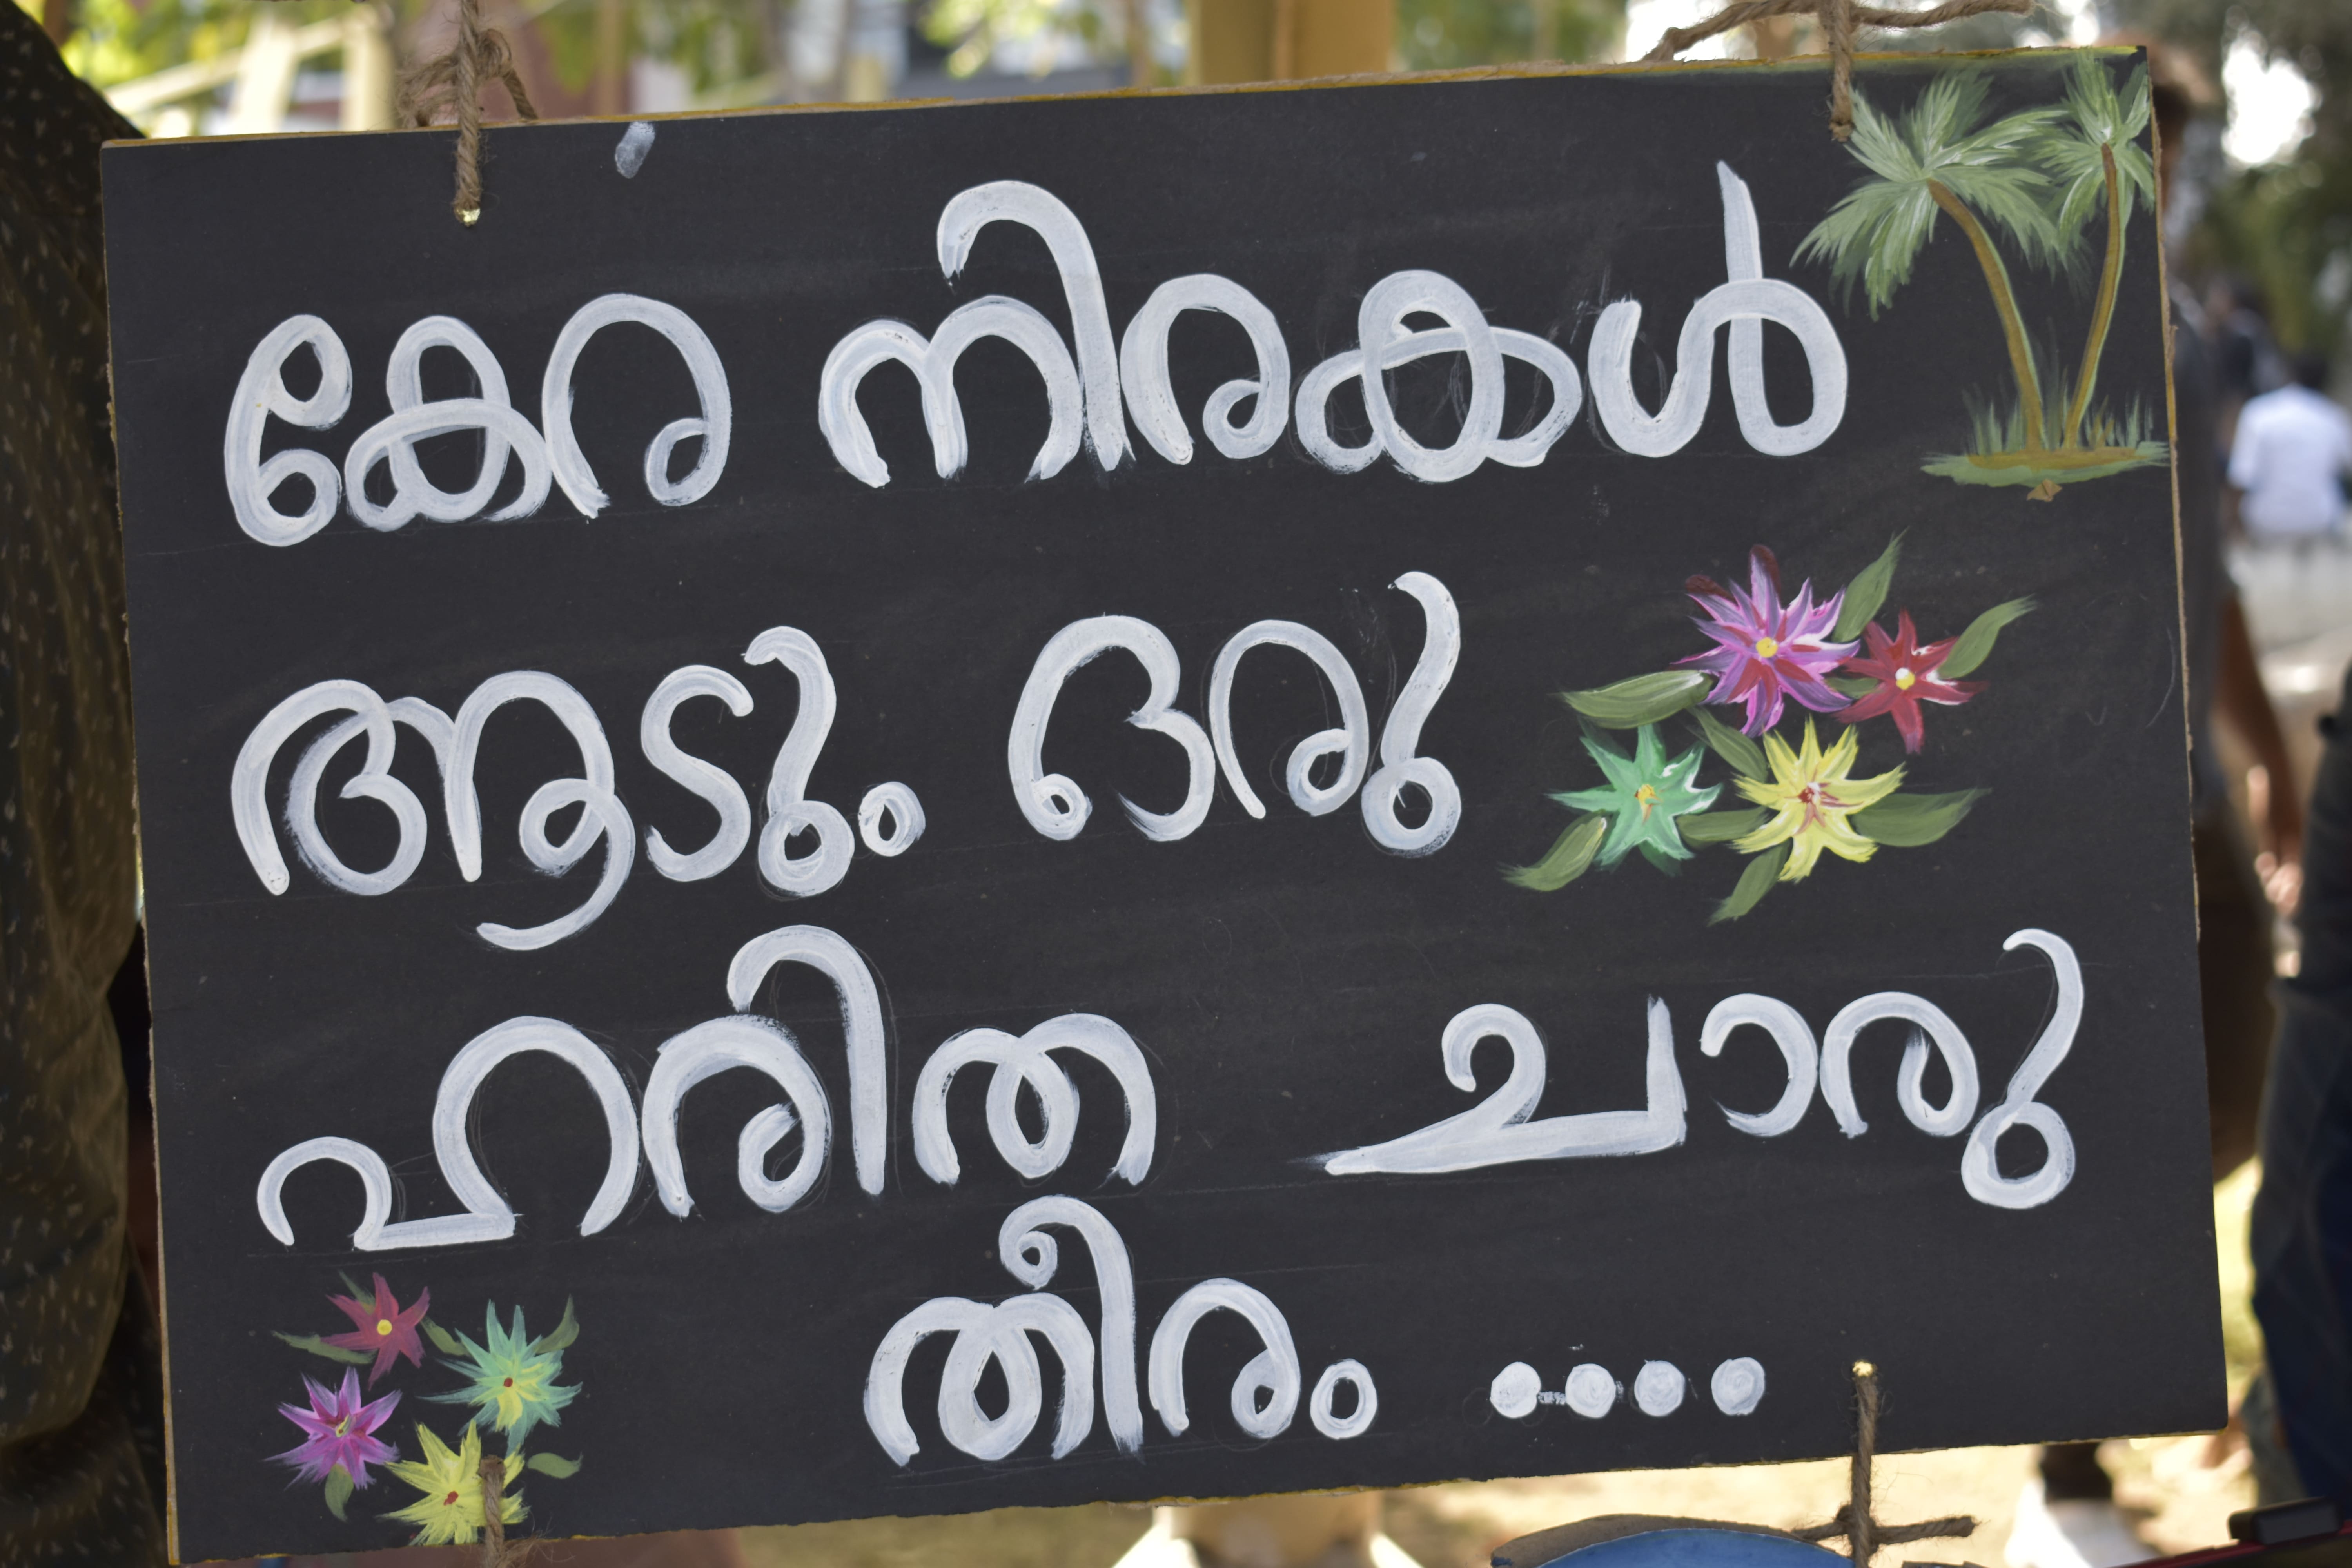 കേര നിരകൾ
ആടും ഒരു
ഹരിത ചാരു
തീരം ....